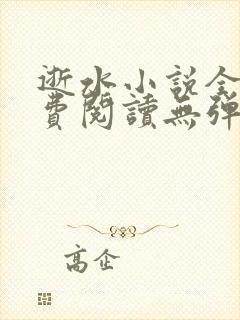 逝水小說全
費閱讀無彈
高企